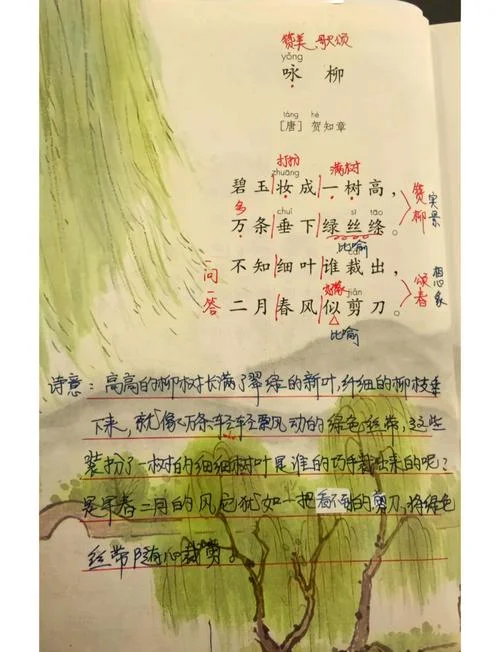 赞美、歌颂
yǒng
咏柳
táng hè
[唐] 贺知章
打扮 满树
zhuāng
碧玉妆成一树高，
多 chuí sī tāo
万条垂下绿丝绦。
赞柳 实景
比喻
cái
不知细叶谁裁出，
好像 jiǎn
二月春风似剪刀。
一问一答
颂春 想象
比喻
诗意：高高的柳树长满了翠绿的新叶，纤细的柳枝垂
下来，就像万条轻轻飘风动的绿色丝带，这些
装扮了一树的细细树叶是谁的巧手裁出来的呢？
是早春二月的风它犹如一把看不到的剪刀，将绿色
丝带随心裁剪。